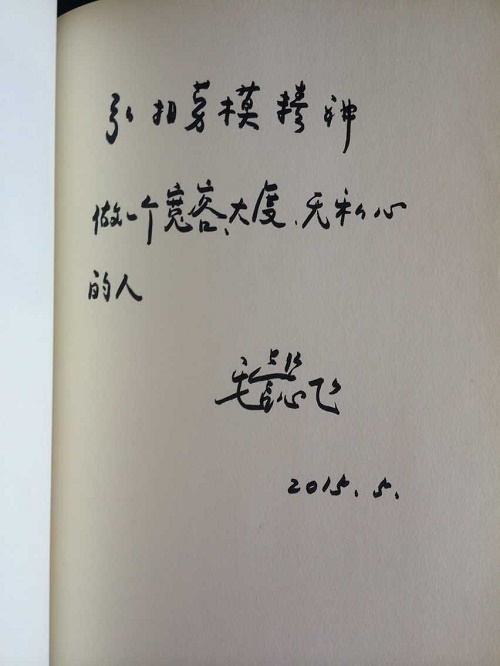 弘扬劳模精神
做一个宽容、大度、无私心
的人
2015.5.